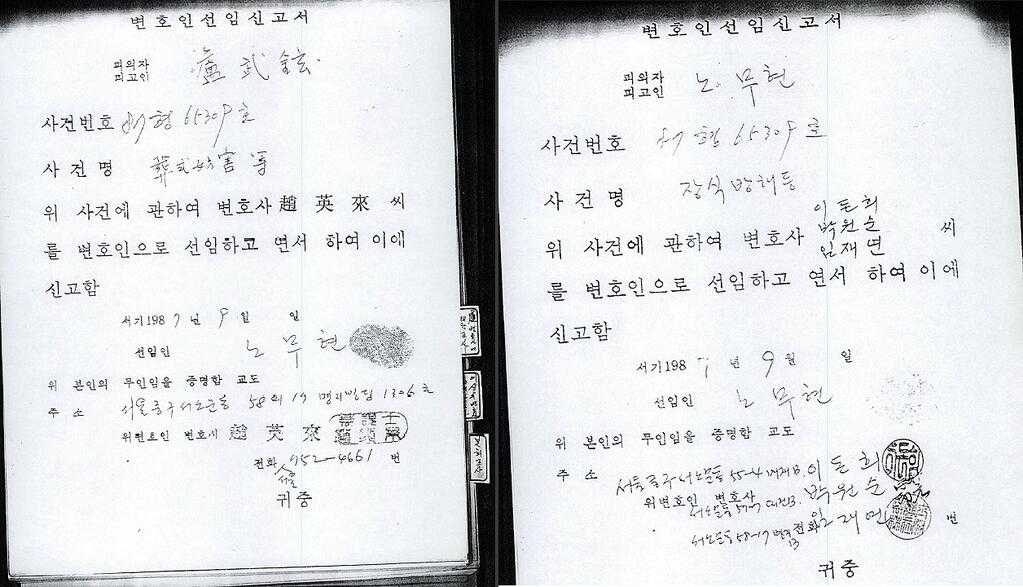 변호인선임신고서
피의자
피고인
盧武鉉
사건번호 87형 65309호
사건명 葬式妨害 等
위 사건에 관하여 변호사 趙英來 씨
를 변호인으로 선임하고 연서 하여 이에
신고함
서기 1987년 9월 일
선임인 노무현
위 본인의 무인임을 증명함 교도
주소 서울 중구 서소문동 58의 17 명지빌딩 1306호
위변호인 변호사 趙英來
전화 952-4661 번
서울
귀중
변호인선임신고서
피의자
피고인
노무현
사건번호 형 65309호
사건명 장식방해 등
이돈희
위 사건에 관하여 변호사 박원순 씨
임재연
를 변호인으로 선임하고 연서 하여 이에
신고함
서기 1987년 9월 일
선임인 노무현
위 본인의 무인임을 증명함 교도
주소 서울 중구 서소문동 55-4 이돈희
위변호인 변호사
서소문동 박원순
서소문동 58-17 전화 임재연 번
귀중